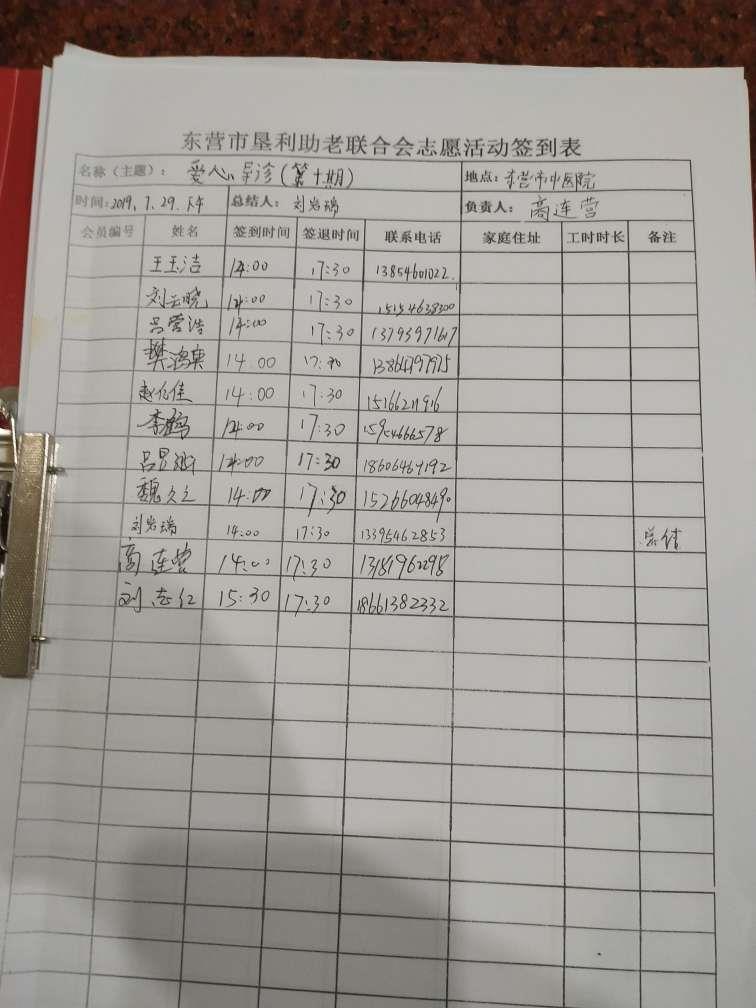 东营市垦利助老联合会志愿活动签到表
名称（主题）： 爱心导诊（第十期） 地点：东营市中医院
时间：2019.7.29.下午 总结人： 刘岩瑞 负责人： 高连营
会员编号 姓名 签到时间 签退时间 联系电话 家庭住址 工时时长 备注
王玉洁 14:00 17:30 13854601022
刘云晓 14:00 17:30 15154638300
吕营浩 14:00 17:30 13793971617
樊鸿 14.00 17:30 13864797975
赵 佳 14:00 17:30 15166211916
李鹤 14:00 17:30 15954666578
吕 14:00 17:30 18606467192
魏久之 14:00 17:30 15266048490
刘岩瑞 14:00 17:30 13395462853 总结
高连营 14:00 17:30 13181962298
刘志红 15:30 17:30 18661382332